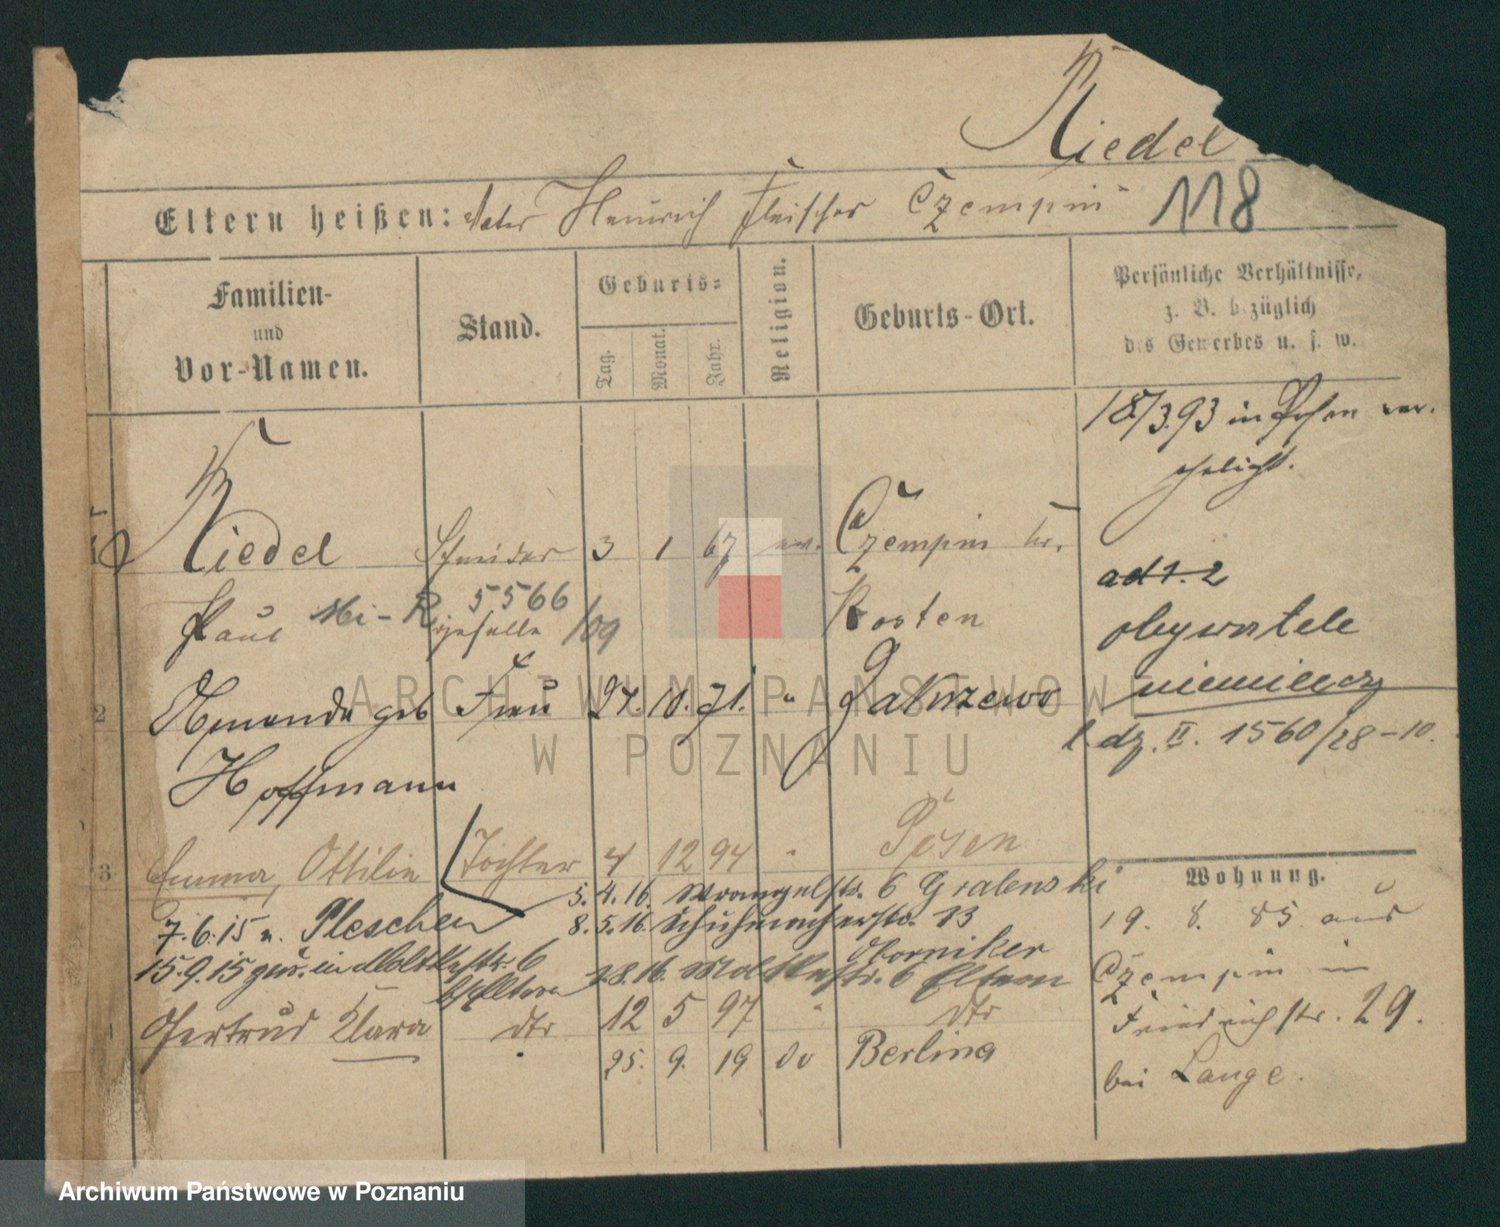 Riedel
Eltern heißen: Vater Heinrich Fleischer Czempiń 118
Familien-
und
Vor-Namen.
Stand.
Geburts-
Tag.
Monat.
Jahr.
Religion.
Geburts-Ort.
Persönliche Verhältnisse,
z. B. bezüglich
des Gewerbes u. s. w.
18/3.93 in Posen ver-
ehelicht.
1 Riedel Schneider 3 1 67 ev. Czempin Kr.
Paul geselle Kosten
5566/09
ad 1. 2
obywatele
niemieccy
l. dz. II. 1560/28-10.
2 Amanda geb Frau 27. 10. 71. " Zakrzewo
Hoffmann
3 Emma, Ottilie Tochter 4 12 94 " Posen
5. 4. 16. Wrangelstr. 6 Gralenski
7. 6. 15 n. Pleschen 8. 5. 16. Schuhmacherstr. 13
Oborniker
15. 9. 15 zur. in Moltkestr. 6
b/Eltern
8. 16. Moltkestr. 6 Eltern
4 Gertrud Klara dto 12 5 97 " dto
25. 9. 19 do Berlina
Wohnung.
19. 8. 85 aus
Czempin in
Friedrichstr. 29.
bei Lange.
ARCHIWUM PAŃSTWOWE
W POZNANIU
Archiwum Państwowe w Poznaniu